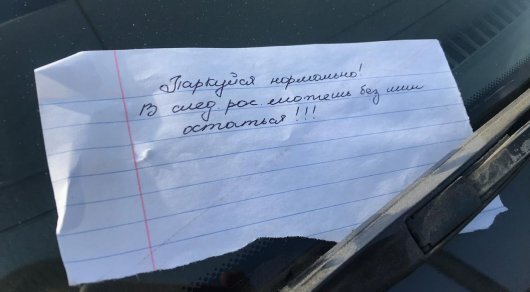 Паркуйся нормально!
В след рос. можешь без шин
остаться!!!